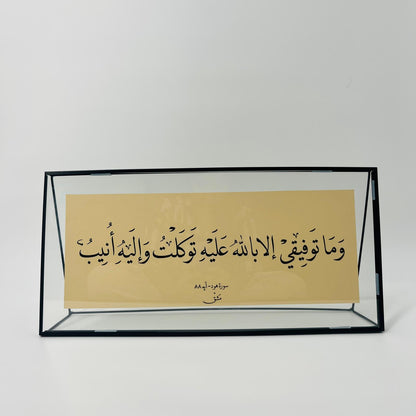 وَمَا تَوْفِيْقِيْ إلا بِاللهُ عَلَيْهِ تَوَكَلْتُ وَإلَيْهِ أُنِيبُ
سورة هود - آية ٨٨